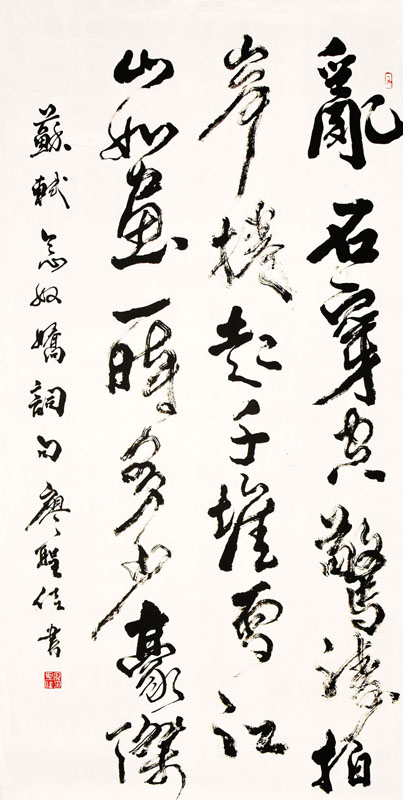 亂石穿空驚濤拍
岸捲起千堆雪江
山如畫一時多少豪傑
蘇軾念奴嬌詞句廖聖佳書